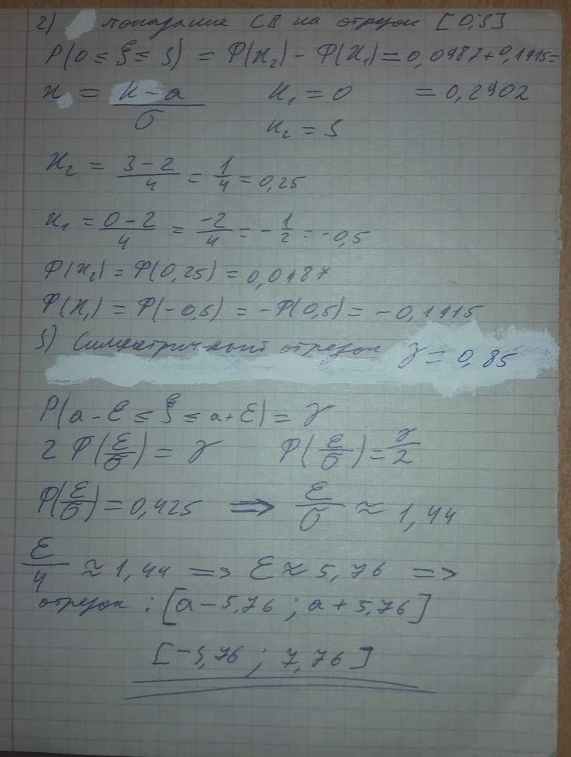 2) попадание СВ на отрезок [0,3]
P(0 ≤ ξ ≤ 3) = Ф(x₂) − Ф(x₁) = 0,0987+0,1915=
x = k−a / σ    k₁ = 0    = 0,2902
k₂ = 3
x₂ = 3−2 / 4 = 1/4 = 0,25
x₁ = 0−2 / 4 = −2/4 = −1/2 = −0,5
Ф(x₂) = Ф(0,25) = 0,0987
Ф(x₁) = Ф(−0,5) = −Ф(0,5) = −0,1915
3) Симметричный отрезок γ = 0,85
P(a−ε ≤ ξ ≤ a+ε) = γ
2 Ф(ε/σ) = γ    Ф(ε/σ) = γ/2
Ф(ε/σ) = 0,425 ⟹ ε/σ ≈ 1,44
ε/4 ≈ 1,44 => ε ≈ 5,76 =>
отрезок : [a−5,76 ; a+5,76]
[−3,76 ; 7,76]